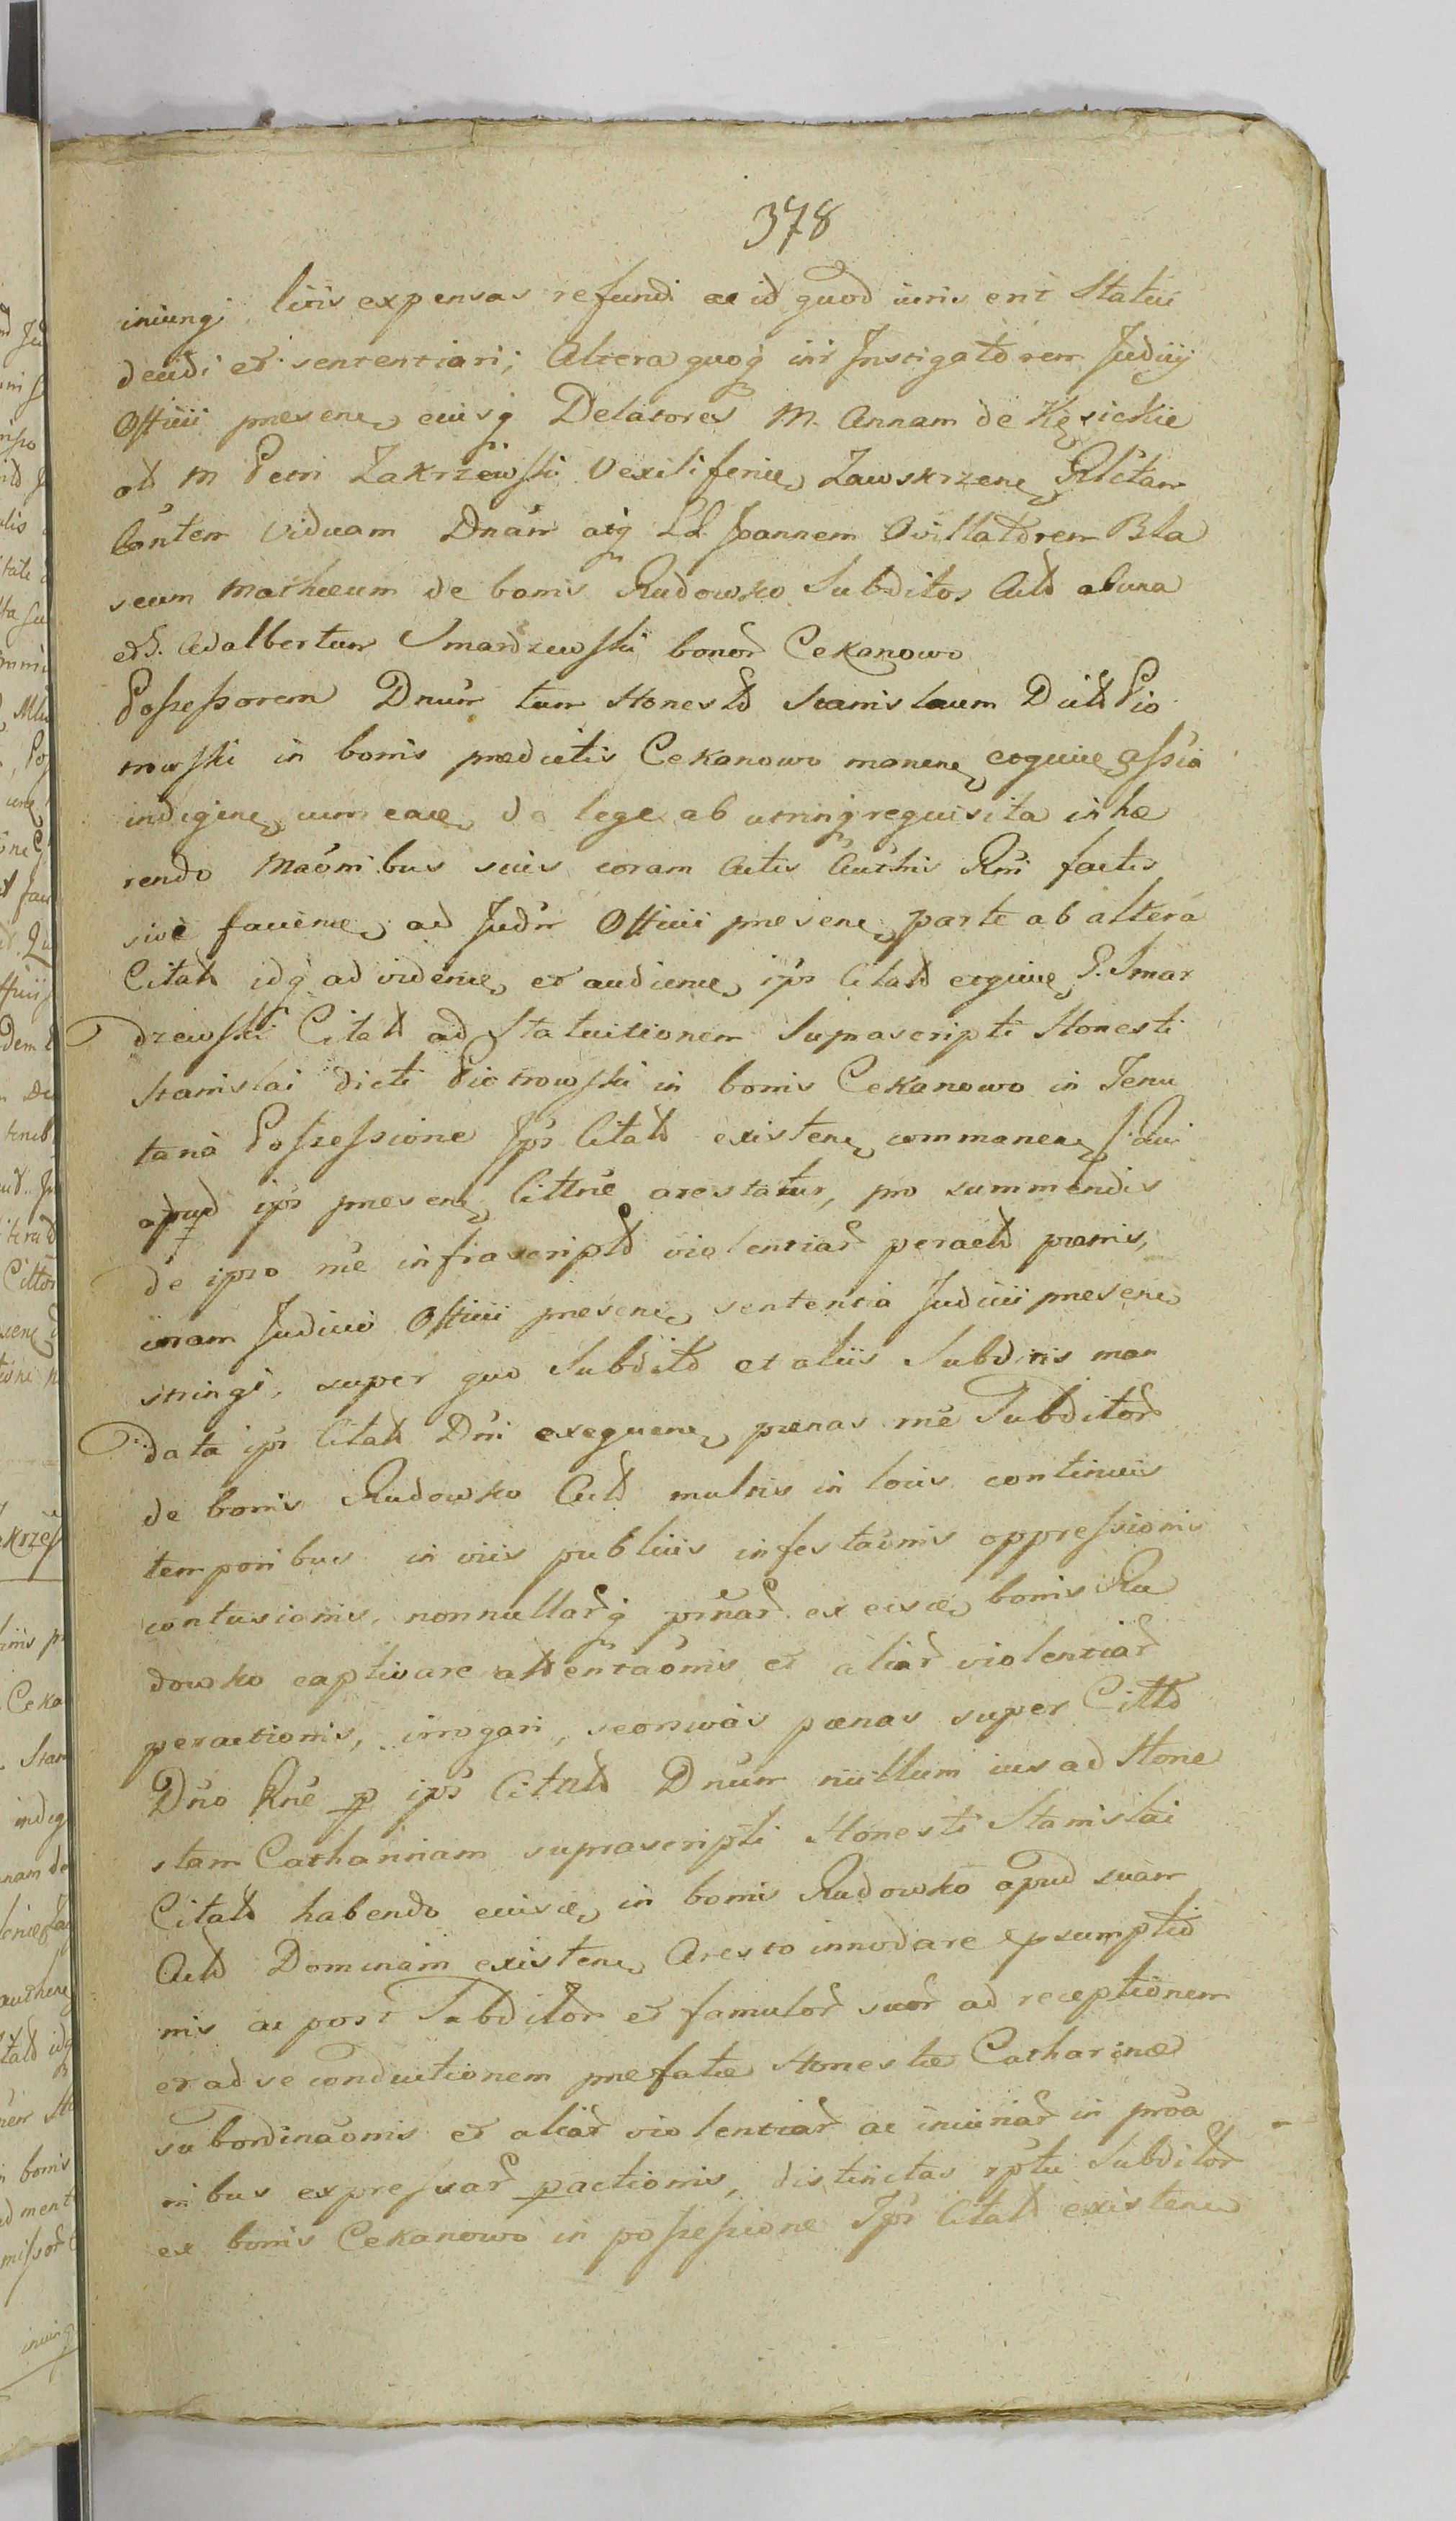 378
iniungi litis expensas refundi ac id quod iuris erit Statui
decidi et sententiari; Altera quoq inr Instigatorem Judicij
Officii presen eiusq Delatores M. Annam de Kęsickie
od M Petri Zakrzewski Vexiliferi Zawskrzen Relictam
Contem viduam Dnam atq Ld. Joannem Ovillatorem Bla
seum Mathæum de bonis Rudowko Subditos Actt ab una
et G. Adalbertum Smardzewski bonor Cekanowo
Possessorem Dnum tum Honestt Stanislaum Dictt Pio
trowski in bonis prædictis Cekanowo manen
indigen cum ea de lege ab utrinq requisita inhæ
rendo Maonibus suis coram Actis Authis Rni factis
sive faciend ad Judm Officii presen parte ab altera
Citatt idq ad vidend et audiend ips Citatt G. Smar
dzewski Citatt ad Statuitionem Suprascripti Honesti
Stanislai dicti Piotrowski in bonis Cekanowo in Tenu
taria Possessione Ips Citatt existen commanen Qui
apud ips presen Cittne arestatur, pro summendis
de ipso rne infrascriptt violentiar peractt pænis,
coram Judicio Officii presen sententia Judicii presen
stringi, super quo Subditt et aliis Subditis man
data ips Citatt Dni exequen pænas rne Subditor
de bonis Rudowko Actt multis in locis continuis
temporibus in viis publicis infestaonis oppressionis
contusionis, nonnullarq prnar ex eisd bonis Ru
dowko captivare attentaonis et aliar violentiar
peractionis, irrogari, seorsivas pænas super Cittt
Dno Rne p ips Citatt Dnum nullum ius ad Hone
stam Catharinam suprascripti Honesti Stanislai
Citatt habendo eiusd in bonis Rudowko apud suam
Actt Dominam existen Aresto innodare
nis ac post Subditor et famulor suor ad receptionem
et ad se conductionem prefatæ Honestæ Catharinæ
subordinaonis et aliar violentiar ac iniuriar in proa
nibus expressar pactionis, distinctas rptu Subditor
ex bonis Cekanowo in possessione Ips Citatt existen